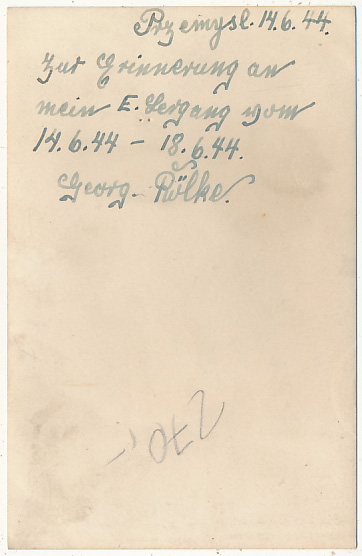 Przemysl. 14.6.44.
Zur Erinnerung an
mein E. Lergang vom
14.6.44 – 18.6.44.
Georg Rölke.